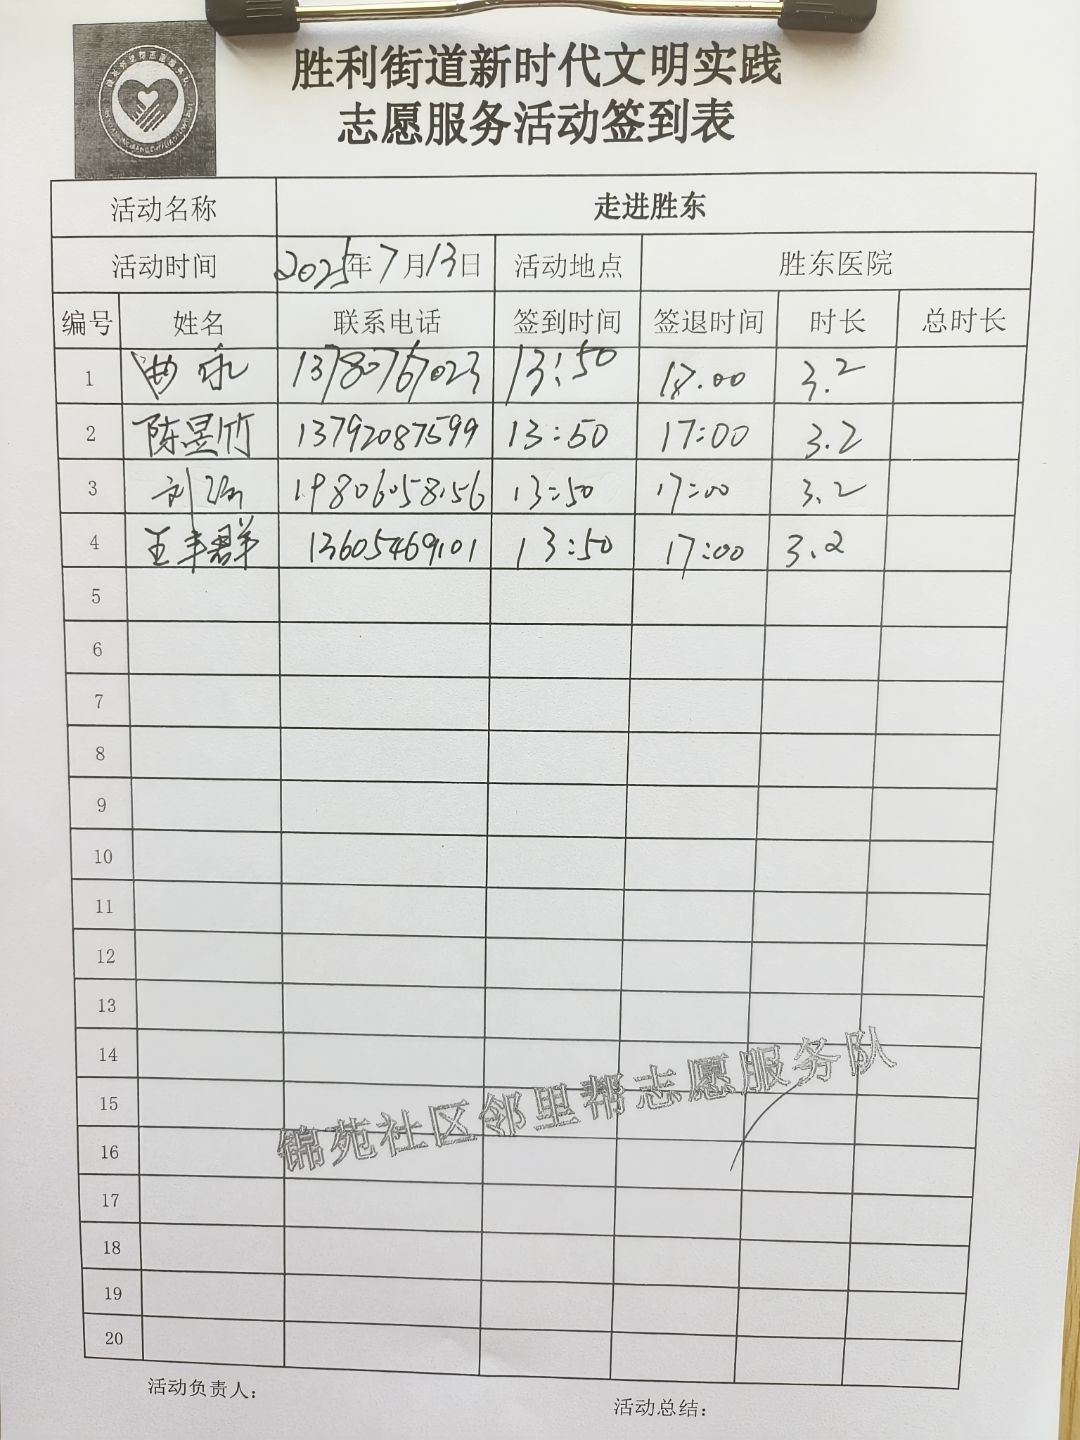 胜利街道新时代文明实践
志愿服务活动签到表
活动名称 走进胜东
活动时间 2025年7月13日 活动地点 胜东医院
编号 姓名 联系电话 签到时间 签退时间 时长 总时长
1 曲永 13780767023 13:50 17.00 3.2
2 陈昱竹 13792087599 13:50 17:00 3.2
3 刘 19806058156 13:50 17:00 3.2
4 王丰群 13605469101 13:50 17:00 3.2
5
6
7
8
9
10
11
12
13
14
15
16
17
18
19
20
锦苑社区邻里帮志愿服务队
活动负责人：
活动总结：